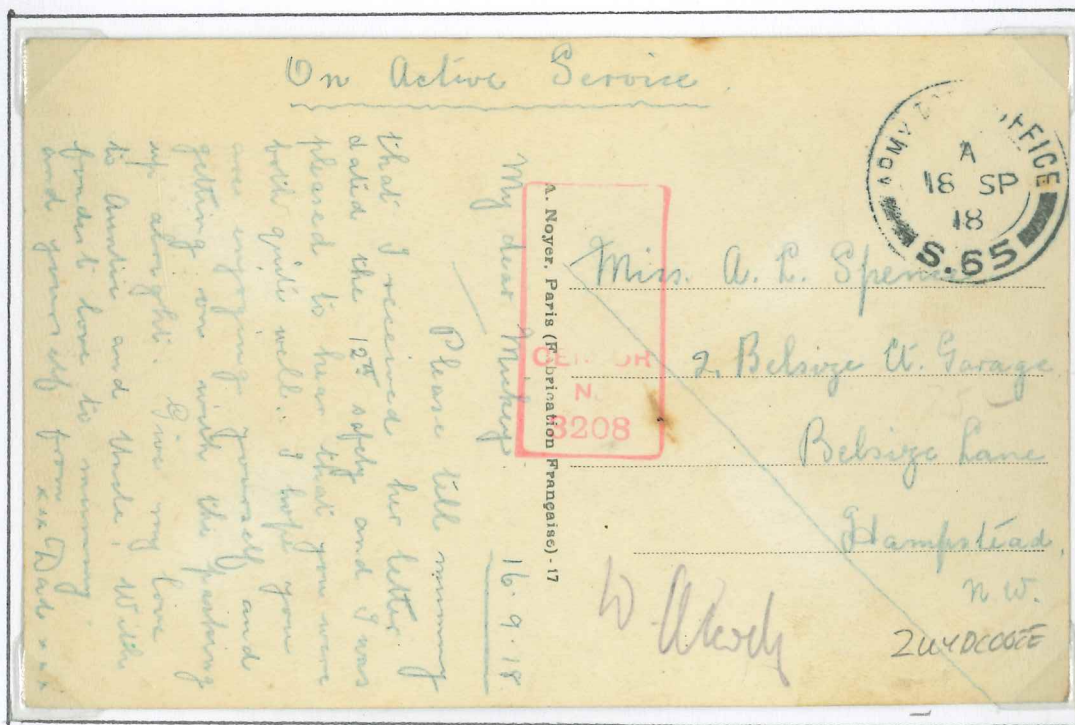 On Active Service.
ARMY OFFICE
A
18 SP
18
S.65
Miss. A. L. Spence
2, Belsize Ct. Garage
Belsize Lane
Hampstead,
N.W.
ZUYDCOOTE
CENSOR
No
3208
A. Noyer. Paris (Fabrication Française) - 17
16.9.18
My dear Mickey
Please tell mummy
that I received her letter
dated the 12th safely and I was
pleased to hear that you were
both quite well. I hope you
are enjoying yourself and
getting on with the
up alright. Give my love
to Auntie and Uncle, With
fondest love to mummy
and yourself from
xxx Dad xxx
W.